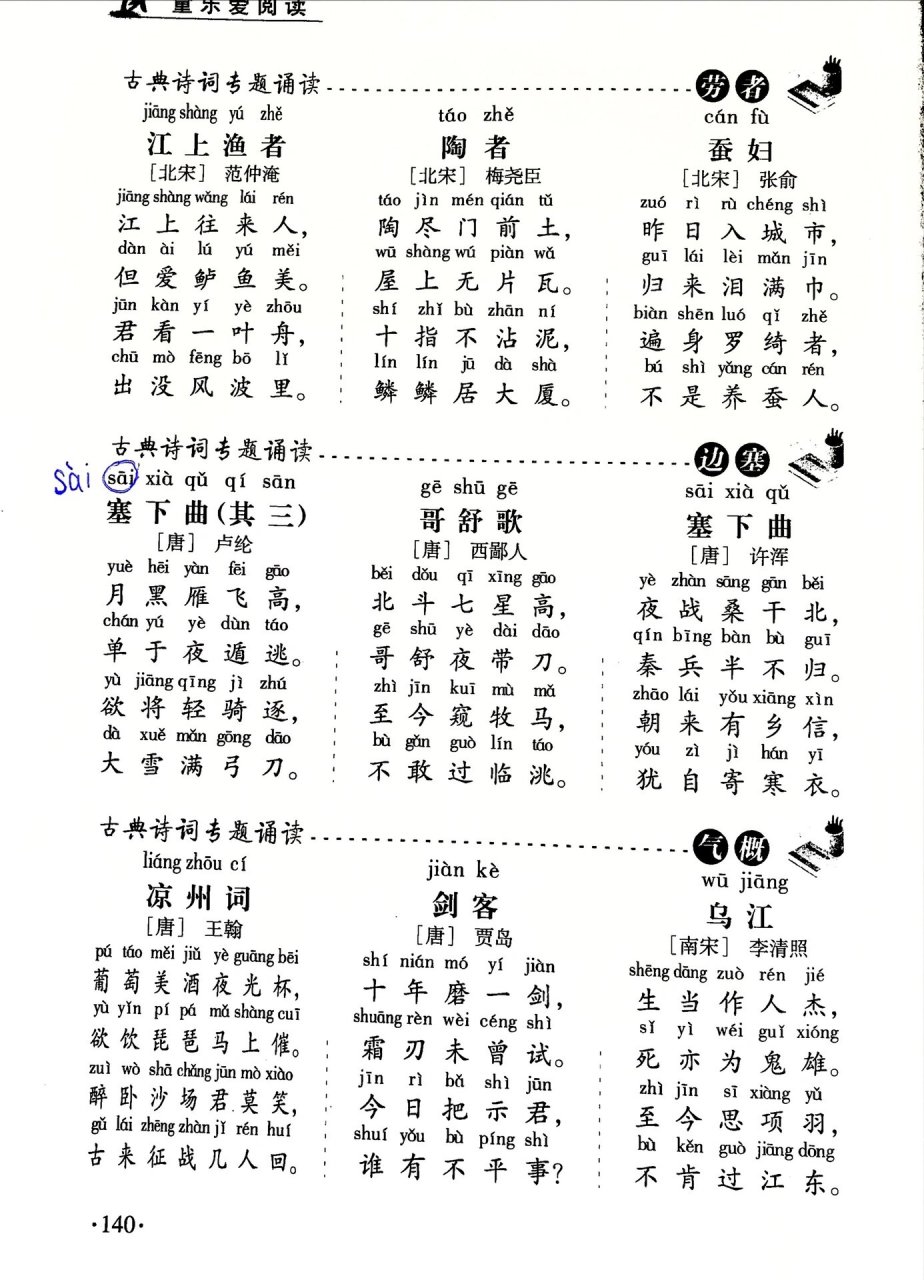 童乐爱阅读
古典诗词专题诵读
劳者
jiāng shàng yú zhě
江上渔者
[北宋] 范仲淹
jiāng shàng wǎng lái rén
江上往来人，
dàn ài lú yú měi
但爱鲈鱼美。
jūn kàn yí yè zhōu
君看一叶舟，
chū mò fēng bō lǐ
出没风波里。
táo zhě
陶者
[北宋] 梅尧臣
táo jìn mén qián tǔ
陶尽门前土，
wū shàng wú piàn wǎ
屋上无片瓦。
shí zhǐ bù zhān ní
十指不沾泥，
lín lín jū dà shà
鳞鳞居大厦。
cán fù
蚕妇
[北宋] 张俞
zuó rì rù chéng shì
昨日入城市，
guī lái lèi mǎn jīn
归来泪满巾。
biàn shēn luó qǐ zhě
遍身罗绮者，
bú shì yǎng cán rén
不是养蚕人。
古典诗词专题诵读
边塞
sài
sāi xià qǔ qí sān
塞下曲(其三)
[唐] 卢纶
yuè hēi yàn fēi gāo
月黑雁飞高，
chán yú yè dùn táo
单于夜遁逃。
yù jiāng qīng jì zhú
欲将轻骑逐，
dà xuě mǎn gōng dāo
大雪满弓刀。
gē shū gē
哥舒歌
[唐] 西鄙人
běi dǒu qī xīng gāo
北斗七星高，
gē shū yè dài dāo
哥舒夜带刀。
zhì jīn kuī mù mǎ
至今窥牧马，
bù gǎn guò lín táo
不敢过临洮。
sāi xià qǔ
塞下曲
[唐] 许浑
yè zhàn sāng gān běi
夜战桑干北，
qín bīng bàn bù guī
秦兵半不归。
zhāo lái yǒu xiāng xìn
朝来有乡信，
yóu zì jì hán yī
犹自寄寒衣。
古典诗词专题诵读
气概
liáng zhōu cí
凉州词
[唐] 王翰
pú táo měi jiǔ yè guāng bēi
葡萄美酒夜光杯，
yù yǐn pí pá mǎ shàng cuī
欲饮琵琶马上催。
zuì wò shā chǎng jūn mò xiào
醉卧沙场君莫笑，
gǔ lái zhēng zhàn jǐ rén huí
古来征战几人回。
jiàn kè
剑客
[唐] 贾岛
shí nián mó yí jiàn
十年磨一剑，
shuāng rèn wèi céng shì
霜刃未曾试。
jīn rì bǎ shì jūn
今日把示君，
shuí yǒu bù píng shì
谁有不平事？
wū jiāng
乌江
[南宋] 李清照
shēng dāng zuò rén jié
生当作人杰，
sǐ yì wéi guǐ xióng
死亦为鬼雄。
zhì jīn sī xiàng yǔ
至今思项羽，
bù kěn guò jiāng dōng
不肯过江东。
·140·